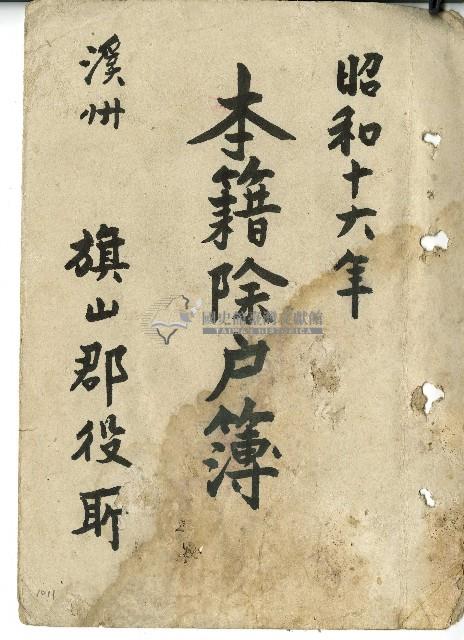 昭和十六年
本籍除户簿
溪州
旗山郡役所
國史館臺灣文獻館
TAIWAN HISTORICA
1011